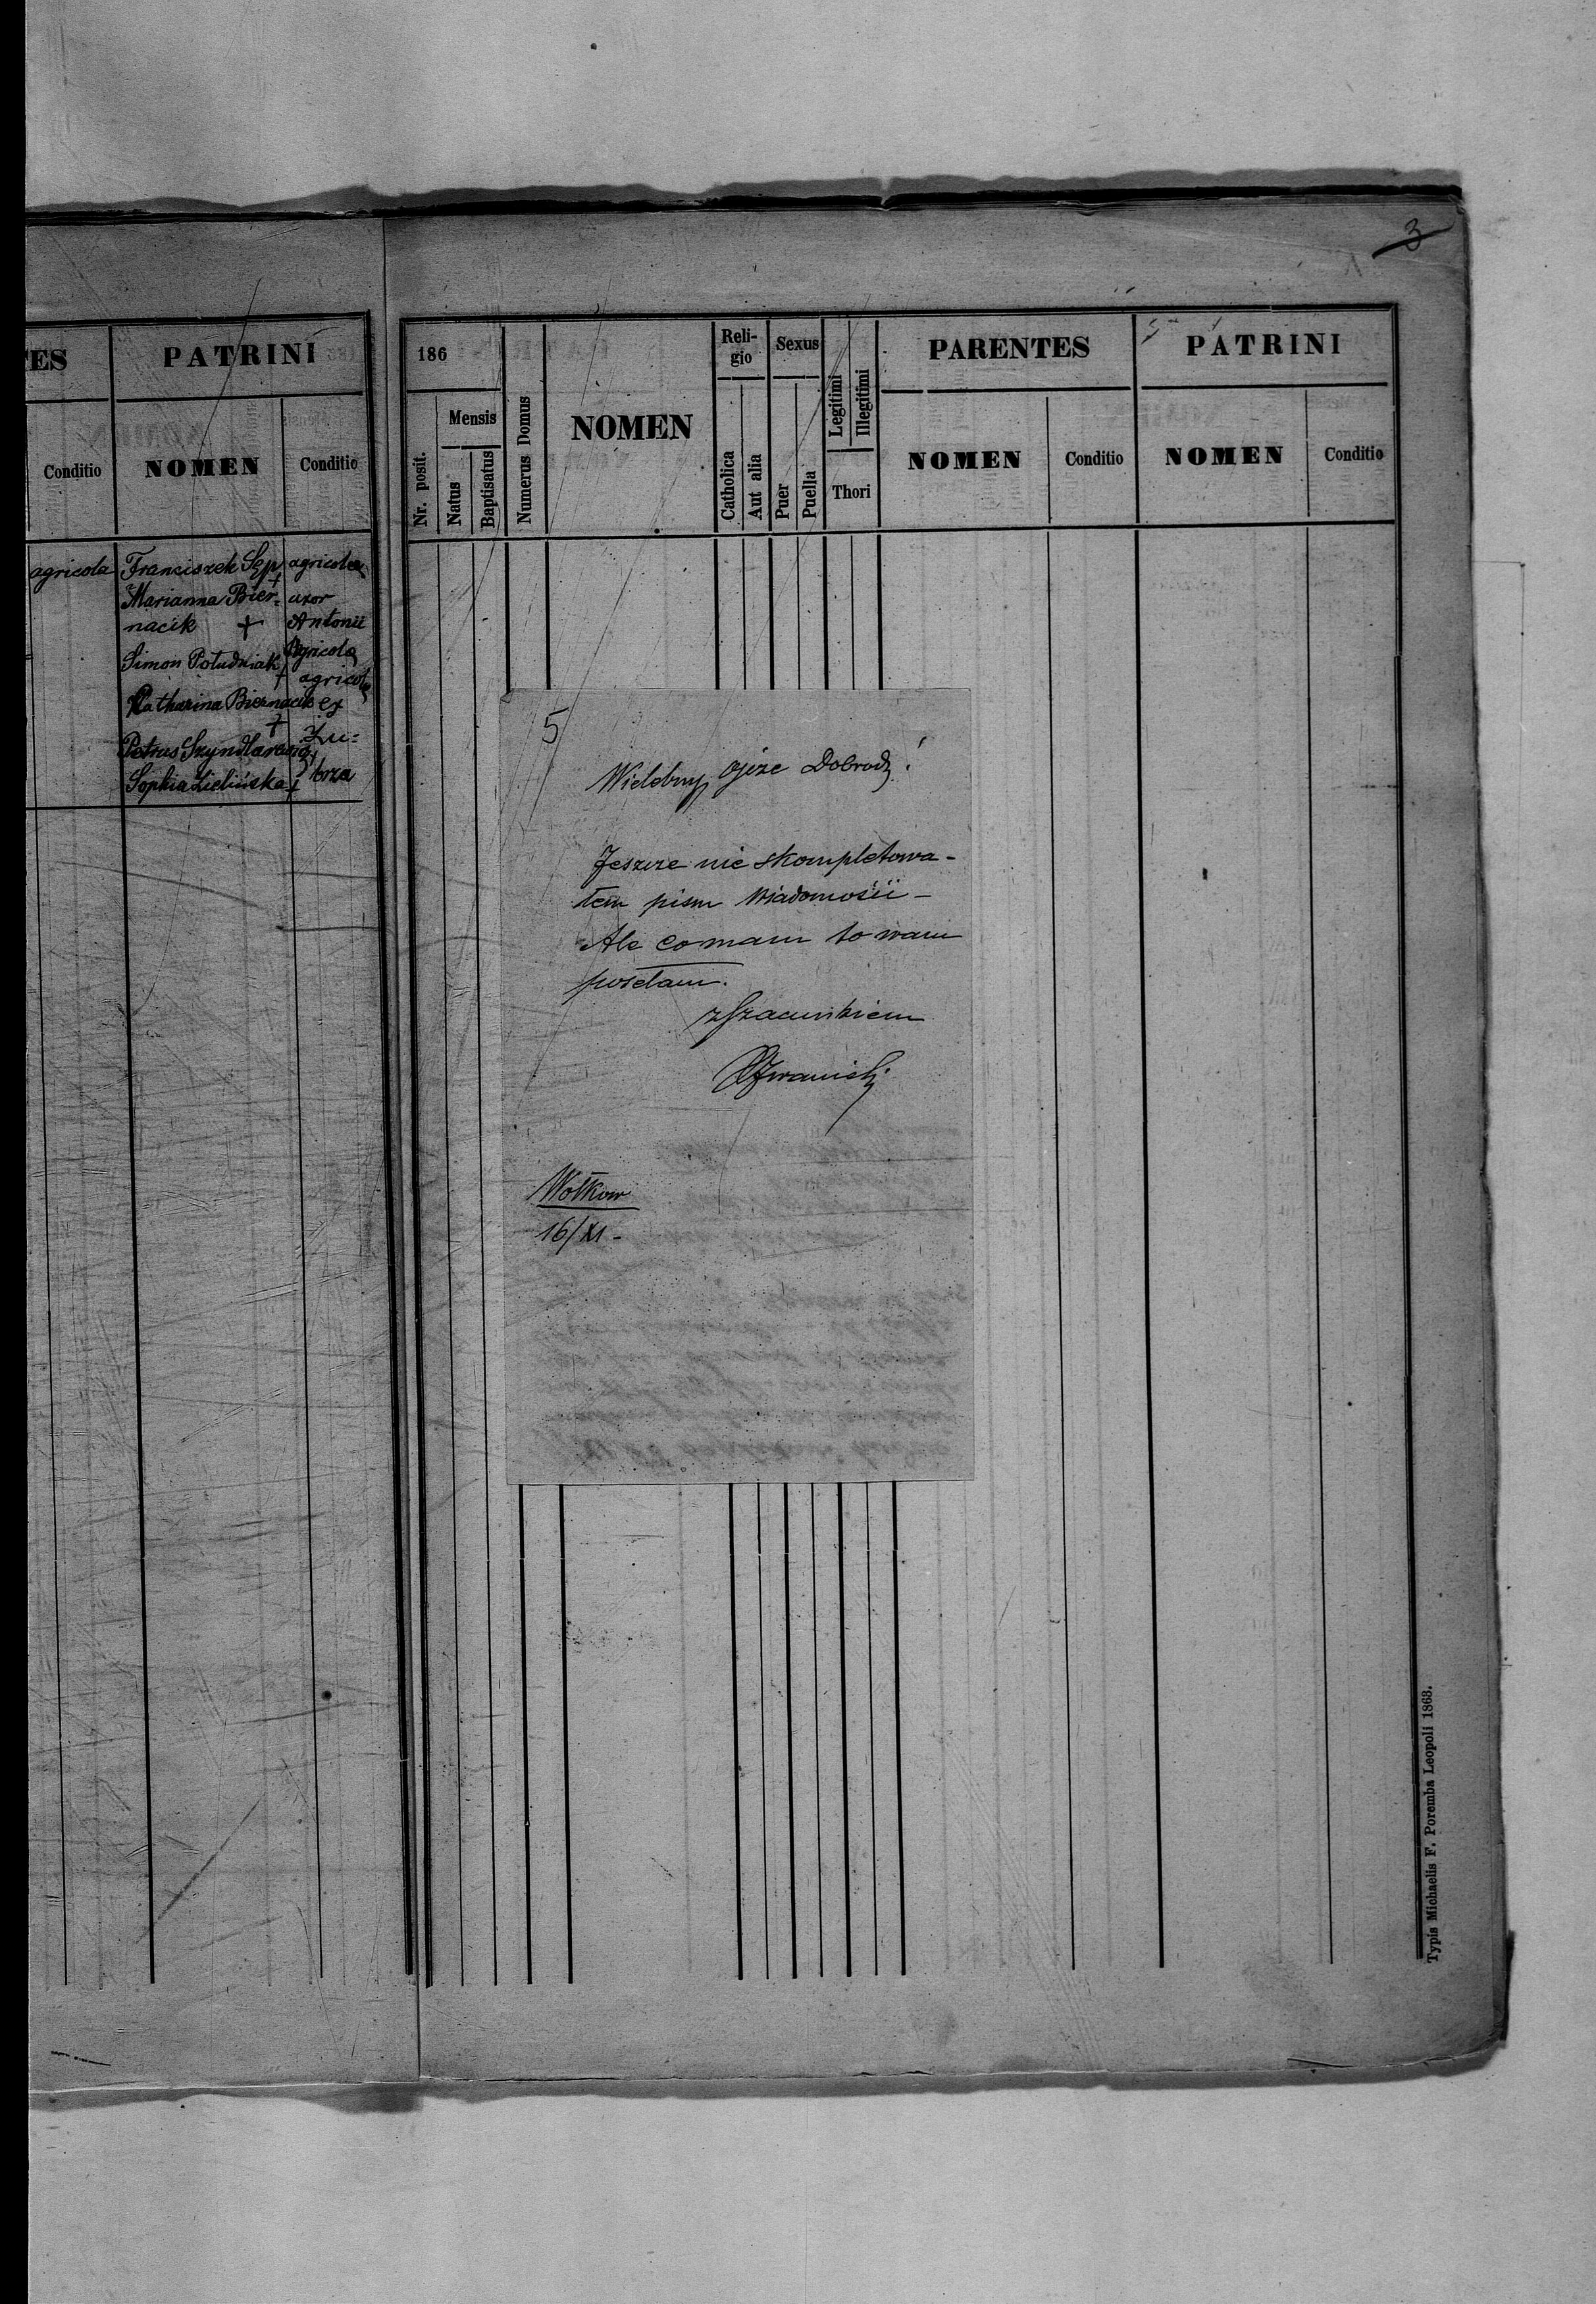 3
ES
PATRINI
Conditio
NOMEN
Conditio
agricola
Franciszek Sęp
agricola
Marianna Bier-
uxor
nacik +
Antonii
Simon Południak
Agricola
+
agricola
Katharina Biernacik
ex
+
Zu=
Petrus Szyndlarewicz
brza
Sophia Zielińska +
186
Mensis
Nr. posit.
Natus
Baptisatus
Numerus Domus
NOMEN
Reli-
gio
Catholica
Aut alia
Sexus
Puer
Puella
Legitimi
Illegitimi
Thori
PARENTES
NOMEN
Conditio
PATRINI
NOMEN
Conditio
5
Wielebny Ojcze Dobrodz!
Jeszcze nie skompletowa-
łem pism Wiadomości -
Ale co mam to wam
posełam.
z Szacunkiem
Wołkow
16/XI -
Typis Michaelis F. Poremba Leopoli 1863.